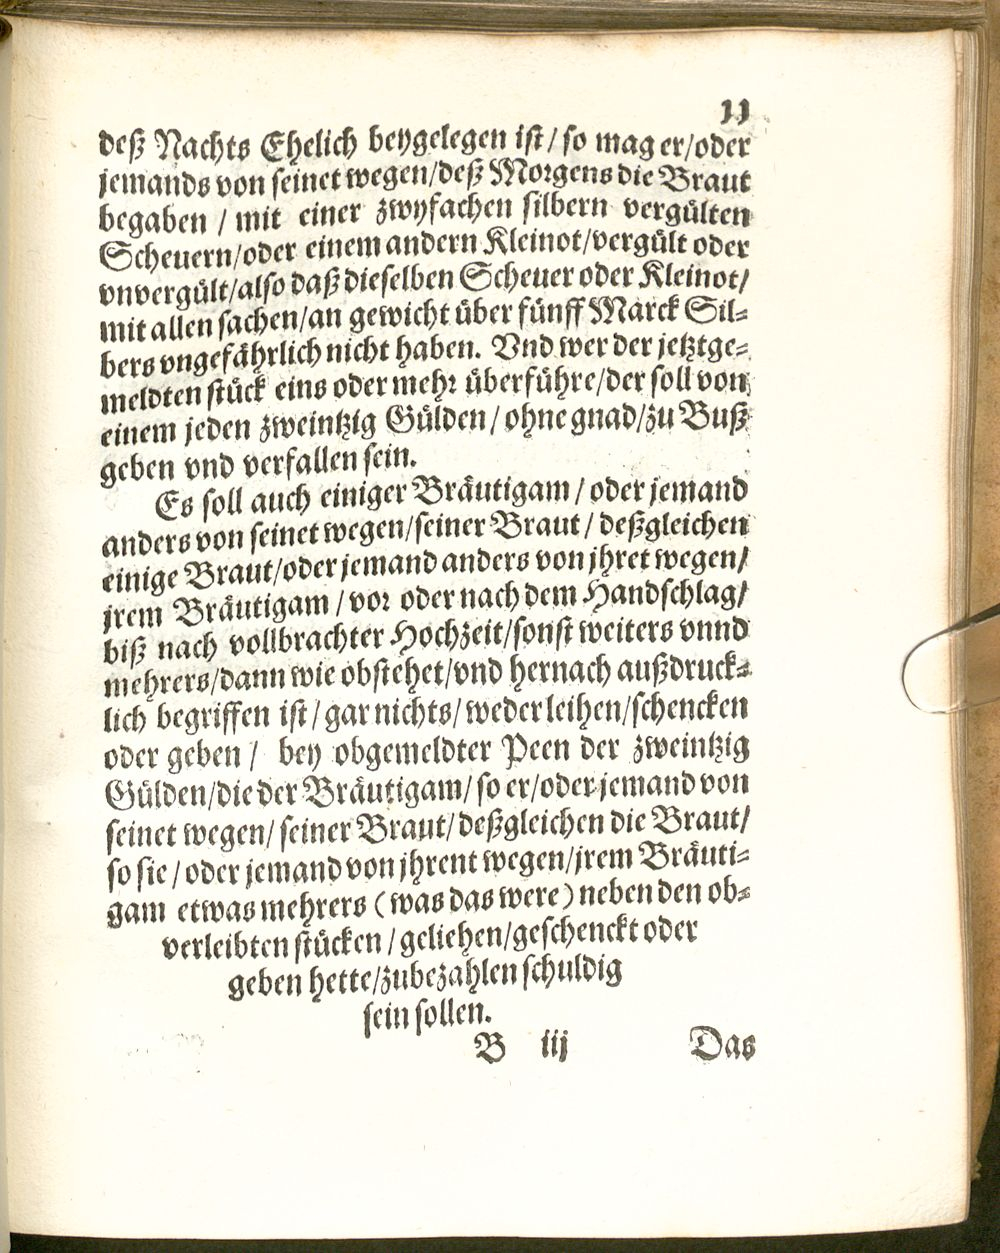 11
deß Nachts Ehelich beygelegen ist/ so mag er/oder
jemands von seinet wegen/deß Morgens die Braut
begaben / mit einer zwyfachen silbern vergülten
Scheuern/oder einem andern Kleinot/vergült oder
vnvergült/also daß dieselben Scheuer oder Kleinot/
mit allen sachen/an gewicht über fünff Marck Sil-
bers vngefährlich nicht haben. Vnd wer der jetztge-
meldten stück eins oder mehr überführe/der soll von
einem jeden zweintzig Gülden / ohne gnad/zu Buß
geben vnd verfallen sein.
Es soll auch einiger Bräutigam / oder jemand
anders von seinet wegen/seiner Braut / deßgleichen
einige Braut/oder jemand anders von jhret wegen/
jrem Bräutigam / vor oder nach dem Handschlag/
biß nach vollbrachter Hochzeit/sonst weiters vnnd
mehrers/dann wie obstehet/vnd hernach außdruck-
lich begriffen ist / gar nichts/ weder leihen/schencken
oder geben / bey obgemeldter Peen der zweintzig
Gülden/die der Bräutigam/ so er/oder jemand von
seinet wegen/ seiner Braut/ deßgleichen die Braut/
so sie / oder jemand von jhrent wegen/jrem Bräuti-
gam etwas mehrers (was das were) neben den ob-
verleibten stücken / geliehen/geschenckt oder
geben hette/zubezahlen schuldig
sein sollen.
B iij Das